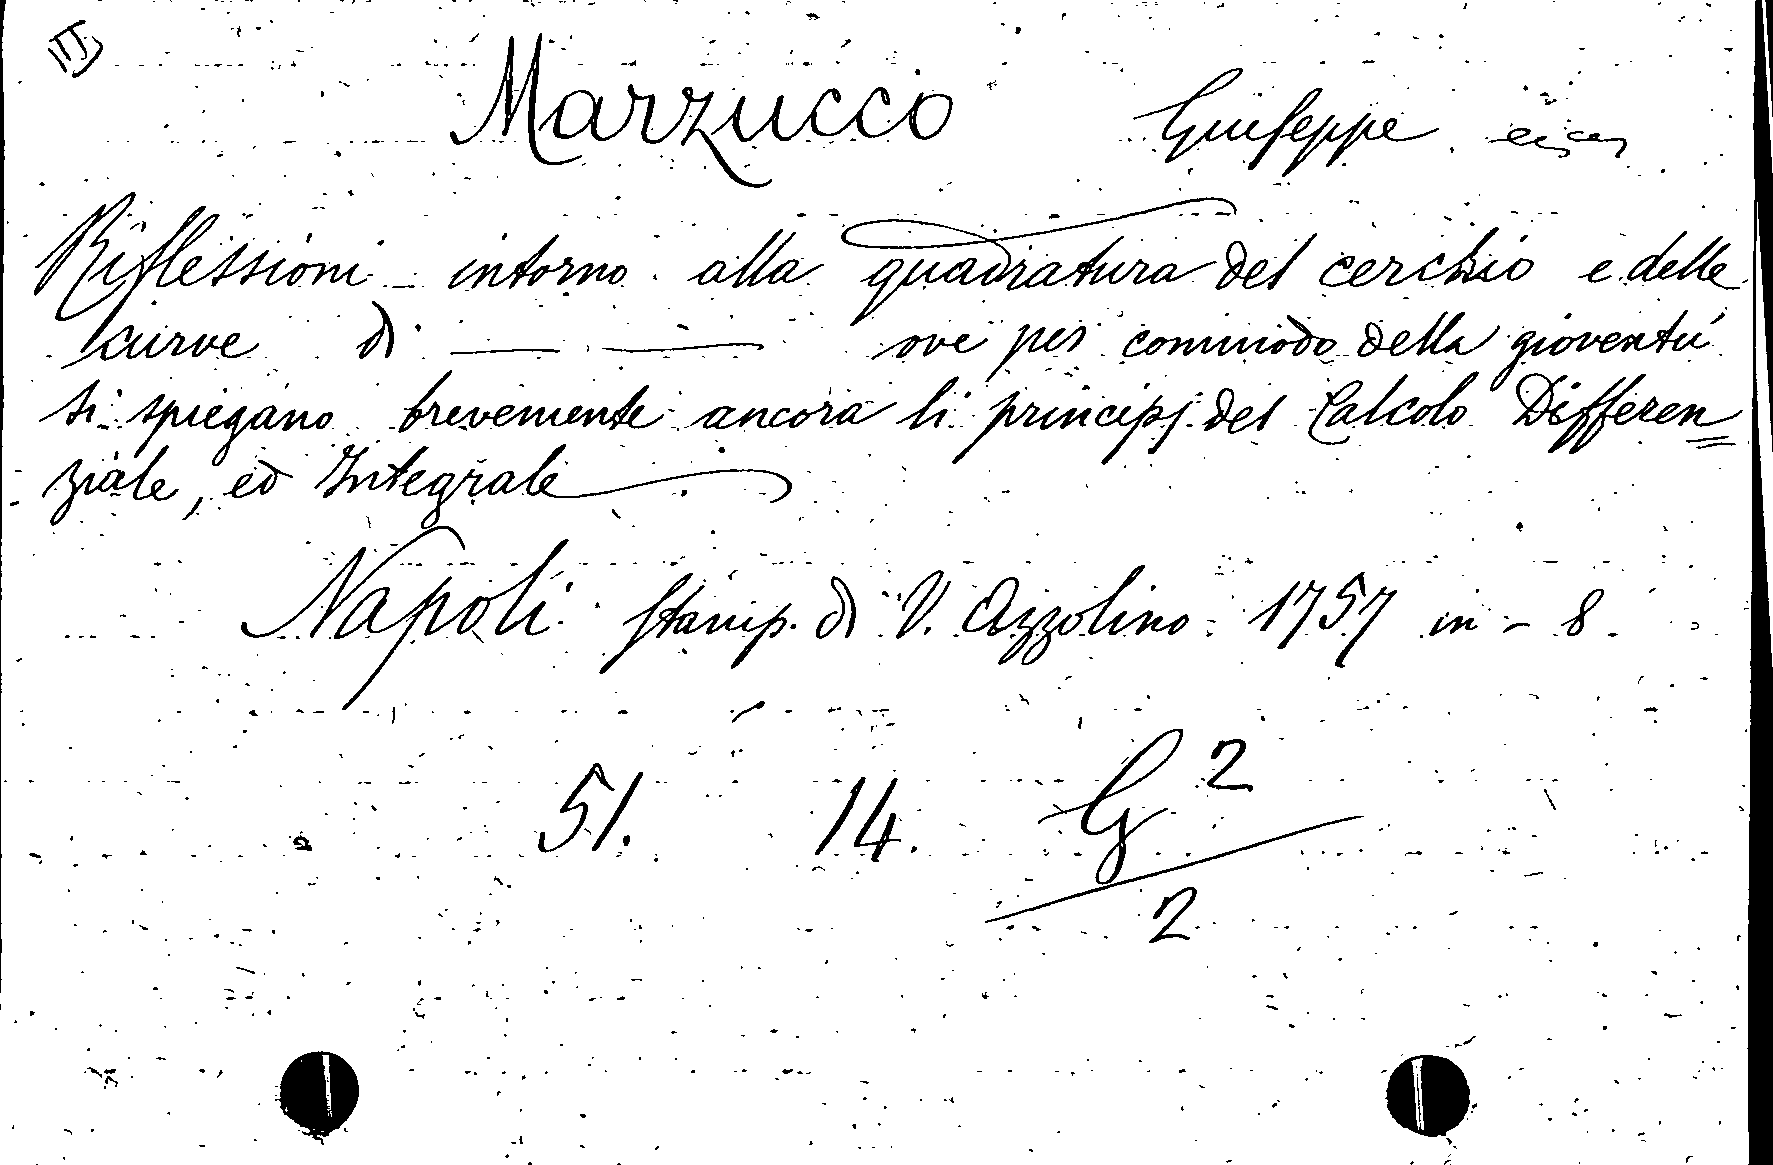 Marzucco Giuseppe
Riflessioni intorno alla quadratura del cerchio e delle
curve di — — ove per commodo della gioventù
si spiegano brevemente ancora li principj del Calcolo Differen=
ziale, ed Integrale
Napoli Stamp. di V. Azzolino 1757 in - 8.
51. 14. G 2
2